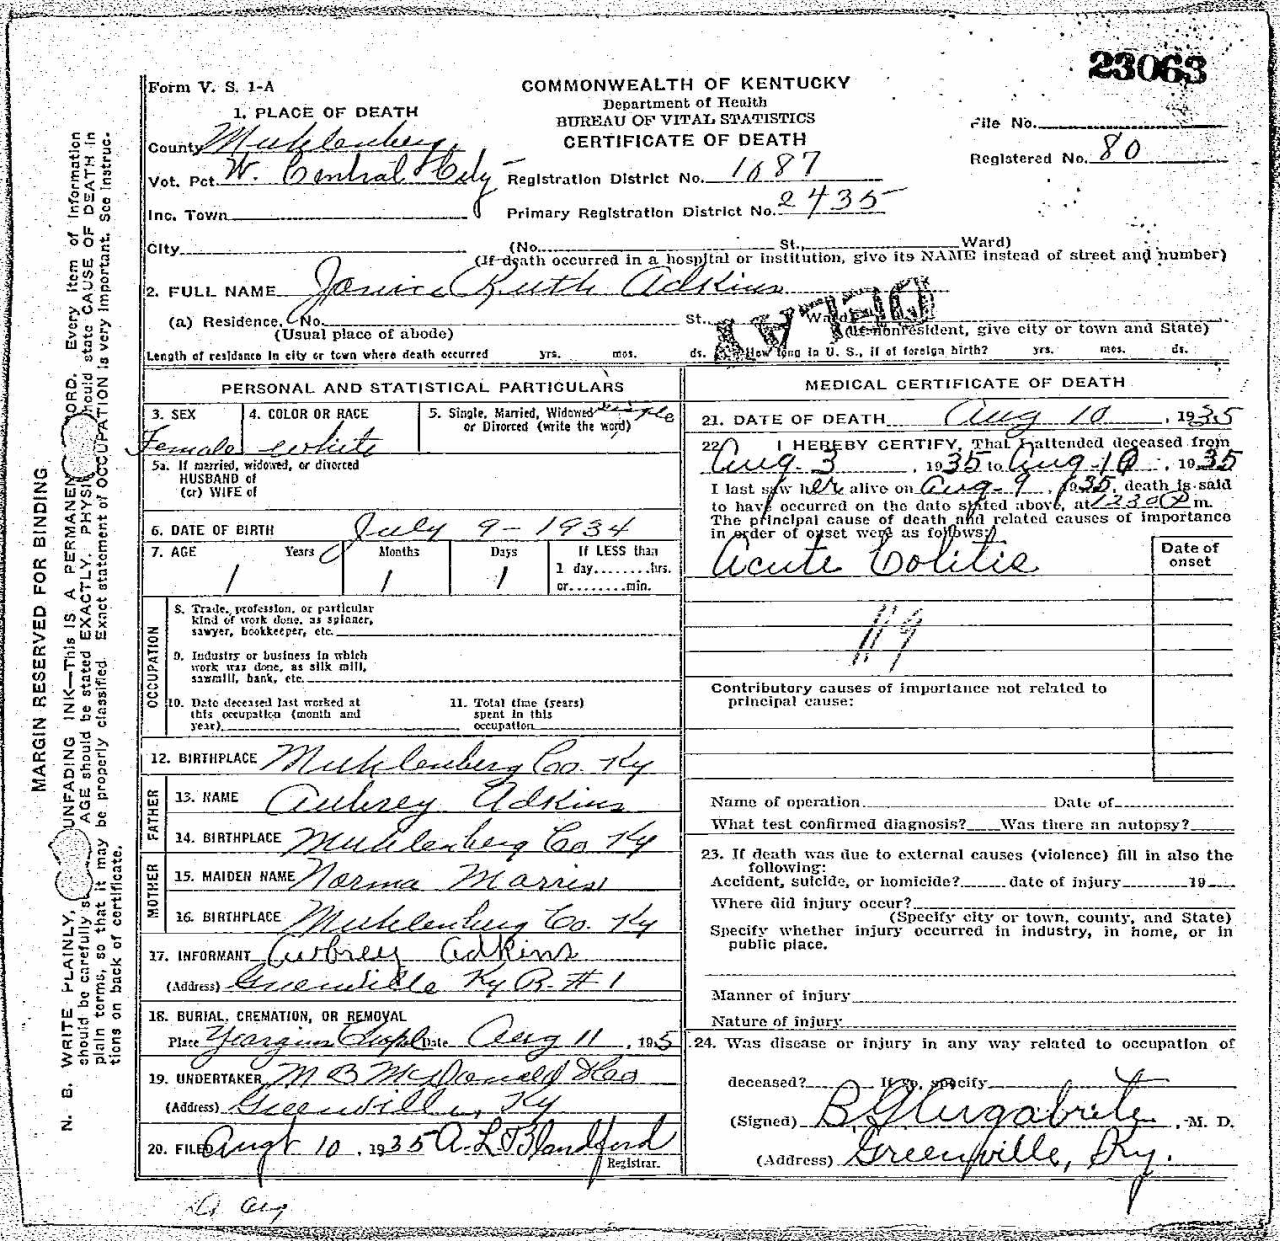 23063
Form V. S. 1-A
COMMONWEALTH OF KENTUCKY
Department of Health
BUREAU OF VITAL STATISTICS
CERTIFICATE OF DEATH
File No.
Registered No. 80
1. PLACE OF DEATH
County Muhlenberg
Vot. Pct. W. Central City
Registration District No. 1087
Inc. Town
Primary Registration District No. 2435
City (No. St., Ward)
(If death occurred in a hospital or institution, give its NAME instead of street and number)
2. FULL NAME Janice Ruth Adkins
(a) Residence. No. St. Ward
(Usual place of abode) (If nonresident, give city or town and State)
Length of residence in city or town where death occurred yrs. mos. ds. How long in U. S., if of foreign birth? yrs. mos. ds.
DELAY
PERSONAL AND STATISTICAL PARTICULARS
3. SEX Female
4. COLOR OR RACE white
5. Single, Married, Widowed or Divorced (write the word) single
5a. If married, widowed, or divorced
HUSBAND of
(or) WIFE of
6. DATE OF BIRTH July 9 - 1934
7. AGE Years Months Days If LESS than
1 1 1 1 day........hrs.
or........min.
OCCUPATION
8. Trade, profession, or particular
kind of work done, as spinner,
sawyer, bookkeeper, etc.
9. Industry or business in which
work was done, as silk mill,
sawmill, bank, etc.
10. Date deceased last worked at
this occupation (month and
year)
11. Total time (years)
spent in this
occupation
12. BIRTHPLACE Muhlenberg Co. Ky
FATHER
13. NAME Aubrey Adkins
14. BIRTHPLACE Muhlenberg Co. Ky
MOTHER
15. MAIDEN NAME Norma Morris
16. BIRTHPLACE Muhlenberg Co. Ky
17. INFORMANT Aubrey Adkins
(Address) Greenville Ky R. # 1
18. BURIAL, CREMATION, OR REMOVAL
Place Chapel Date Aug 11, 1935
19. UNDERTAKER M B McDonald
(Address) Greenville, Ky
20. FILED Augt 10, 1935 A. L. Blandford
Registrar.
MEDICAL CERTIFICATE OF DEATH
21. DATE OF DEATH Aug 10, 1935
22. I HEREBY CERTIFY, That I attended deceased from
Aug. 3, 1935 to Aug. 10, 1935
I last saw her alive on Aug. 9, 1935, death is said
to have occurred on the date stated above, at 1230 P m.
The principal cause of death and related causes of importance
in order of onset were as follows:
Date of onset
Acute Colitis
119
Contributory causes of importance not related to
principal cause:
Name of operation Date of
What test confirmed diagnosis? Was there an autopsy?
23. If death was due to external causes (violence) fill in also the
following:
Accident, suicide, or homicide? date of injury 19
Where did injury occur?
(Specify city or town, county, and State)
Specify whether injury occurred in industry, in home, or in
public place.
Manner of injury
Nature of injury
24. Was disease or injury in any way related to occupation of
deceased? If so, specify
(Signed) M. D.
(Address) Greenville, Ky.
MARGIN RESERVED FOR BINDING
N. B. WRITE PLAINLY, UNFADING INK—THIS IS A PERMANENT Every item of information
should be carefully AGE should be stated EXACTLY. should state CAUSE OF DEATH in
plain terms, so that it may be properly classified. Exact statement of OCCUPATION is very important. See instruc-
tions on back of certificate.